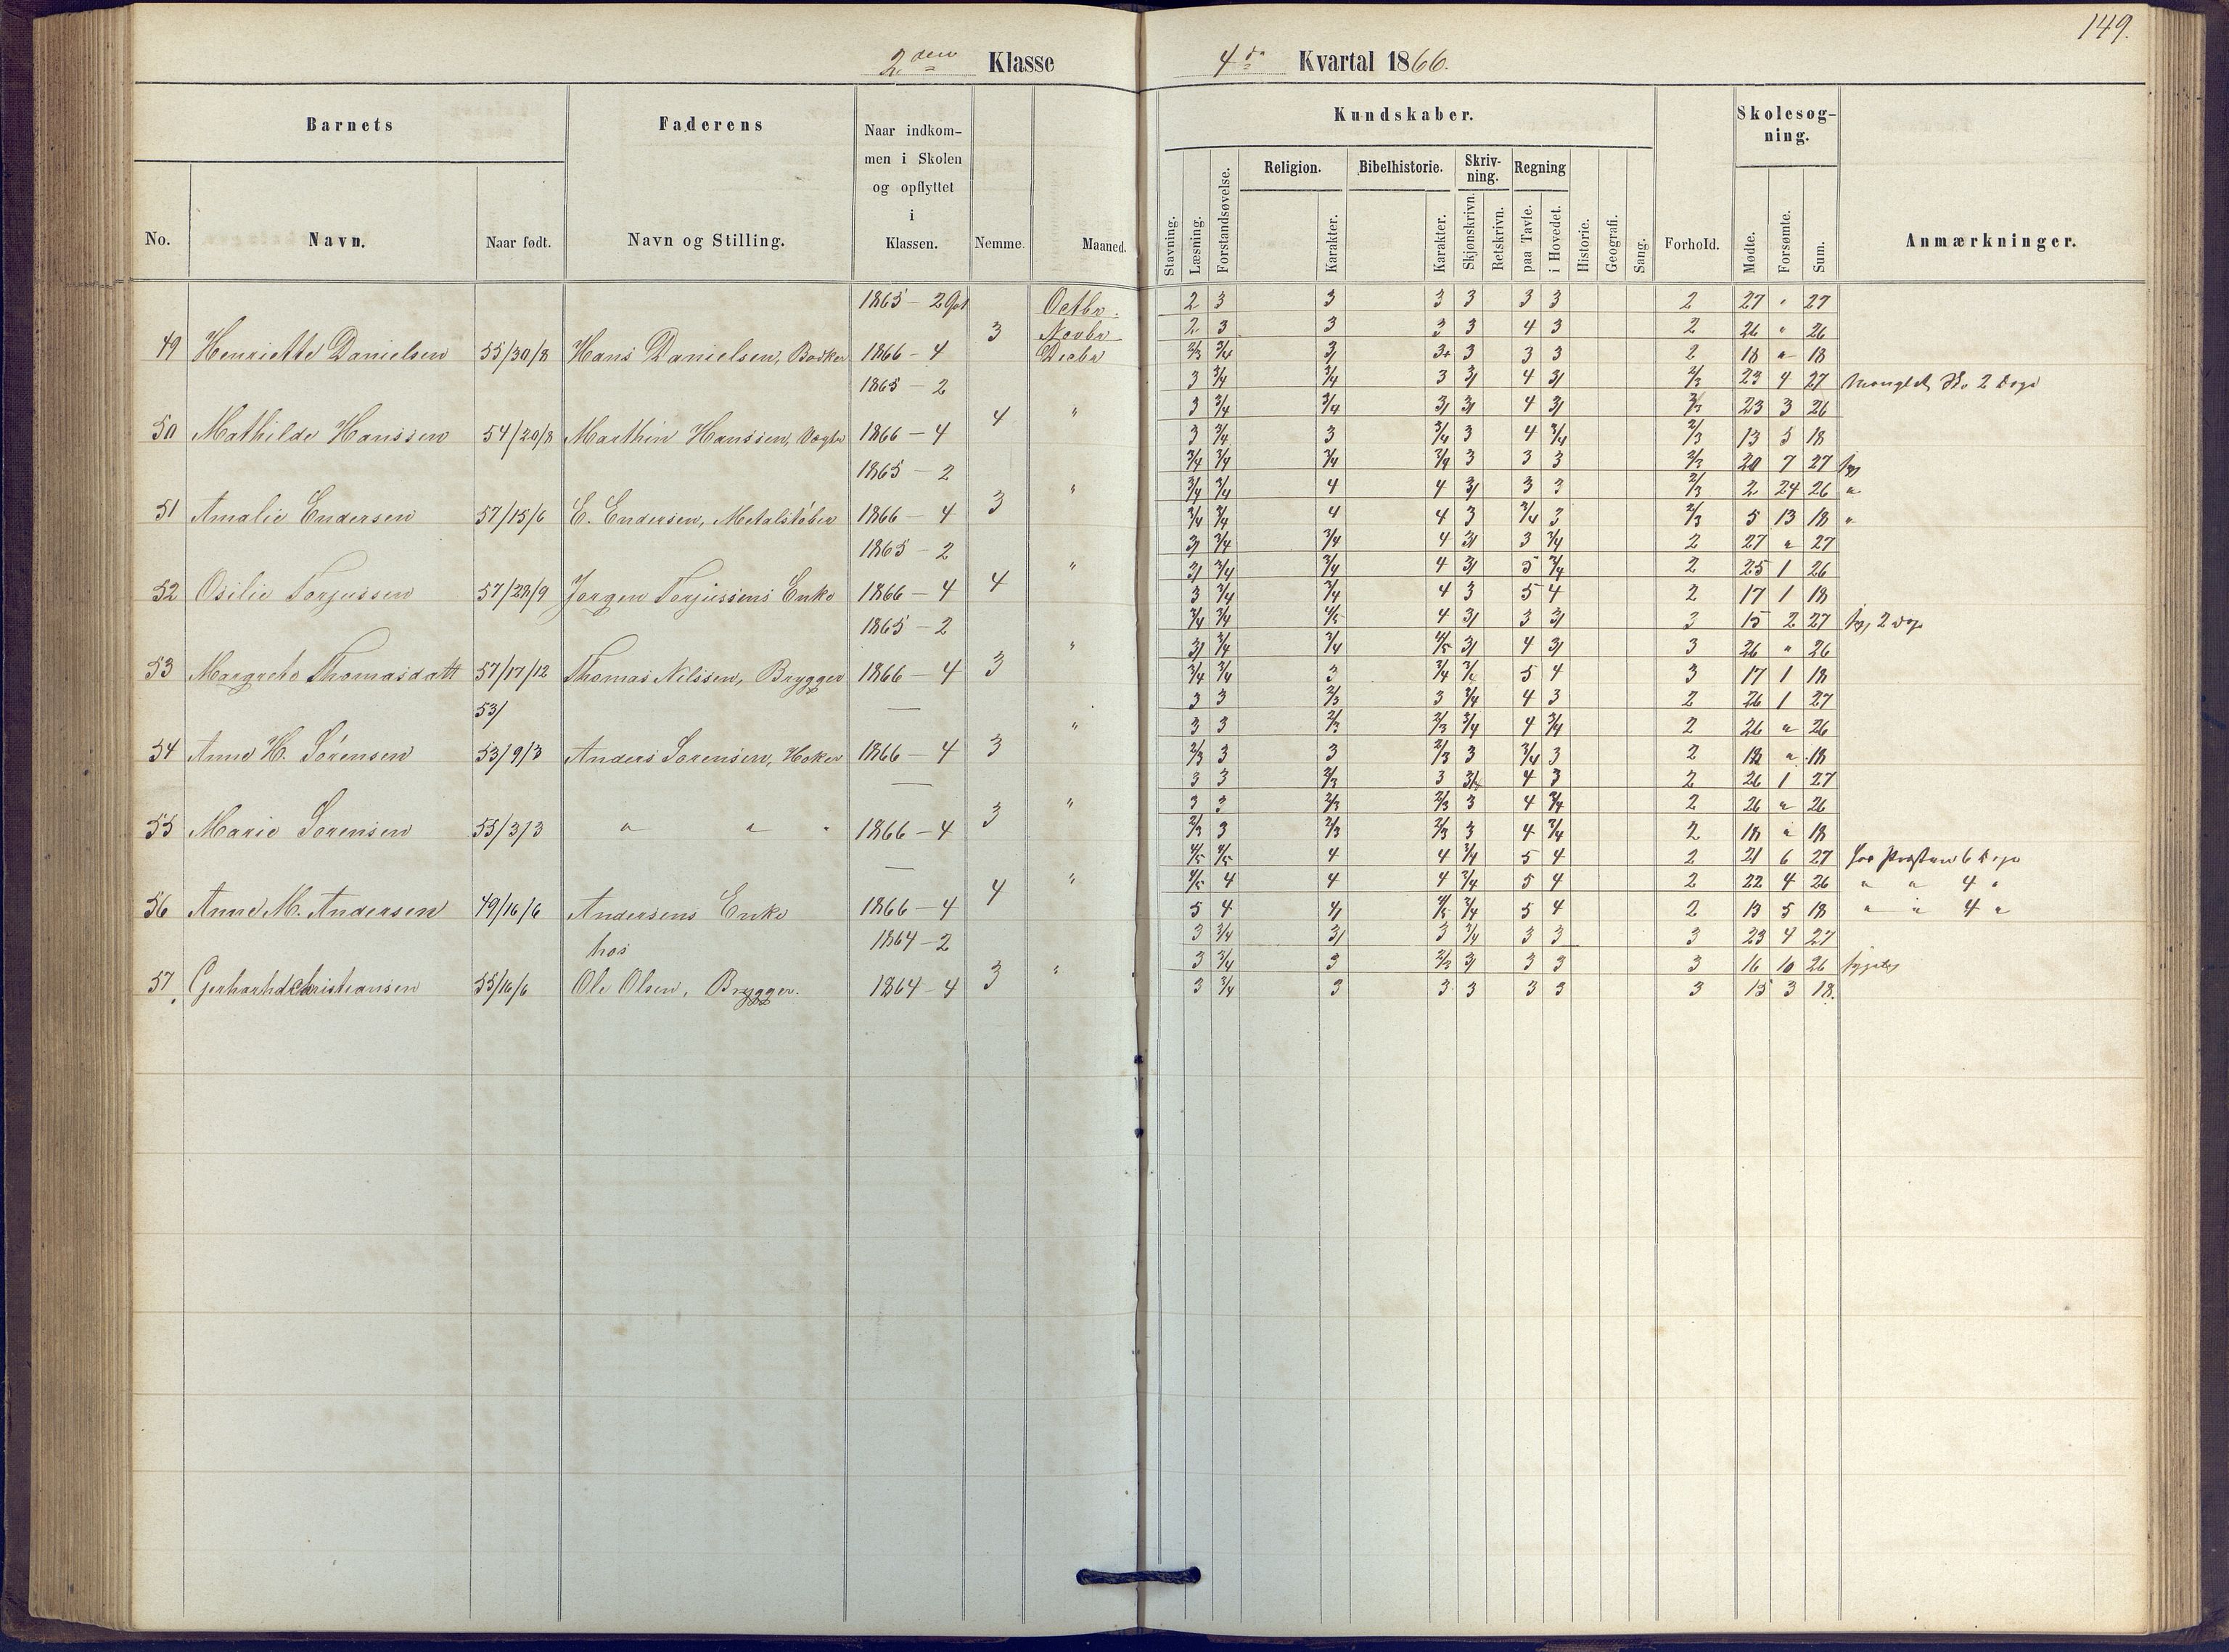 149.
2den Klasse
4de Kvartal 1866.
Barnets
Faderens
Naar indkom-
men i Skolen
og opflyttet
i
Klassen.
No.
Navn.
Naar født.
Navn og Stilling.
Nemme.
Maaned.
Kundskaber.
Skolesøg-
ning.
Religion.
Bibelhistorie.
Skriv-
ning.
Regning
Stavning.
Læsning.
Forstandsøvelse.
Karakter.
Karakter.
Skjønskrivn.
Retskrivn.
paa Tavle.
i Hovedet.
Historie.
Geografi.
Sang.
Forhold.
Mødte.
Forsømte.
Sum.
Anmærkninger.
1865 - 2 Octbr. 2 3 3 3 3 3 3 2 27 " 27
3 Novbr 2 3 3 3 3 4 3 2 26 " 26
49 Henriette Danielsen 55/30/8 Hans Danielsen, Bødker 1866 - 4 Decbr 2/3 3/4 3/ 3+ 3 3 3 2 18 " 18
1865 - 2 3 3/4 3/4 3 3/ 4 3/ 2/3 23 4 27 2 Dage
4 " 3 3/4 3/4 3/ 3/ 4 3/ 2/3 23 3 26
50 Mathilde Hanssen 54/20/8 Marthin Hanssen, Vægter 1866 - 4 3 3/4 3 3/4 3 4 3/4 2/3 13 5 18
1865 - 2 3/4 3/4 3/4 3/4 3 3 3 2/3 20 7 27 syg
3 " 3/4 3/4 4 4 3/ 3 3 2/3 2 24 26 "
51 Amalie Endersen 57/15/6 E. Endersen, Metalstøber 1866 - 4 3/4 3/4 4 4 3 3/4 3 2/3 5 13 18 "
1865 - 2 3/ 3/4 3/4 4 3/ 3 3/4 2 27 " 27
4 " 3/ 3/4 3/4 4 3/ 5 3/4 2 25 1 26
52 Osilie Torjussen 57/28/9 Jørgen Torjussens Enke 1866 - 4 3 3/4 3/4 4 3 5 4 2 17 1 18
1865 - 2 3/4 3/4 4/5 4 3/ 3 3/ 3 15 2 27 syg 2 Dage
3 " 3/ 3/4 3/4 4/5 3/ 4 3/ 3 26 " 26
53 Margrete Thomasdatt 57/17/12 Thomas Nilssen, Brygger 1866 - 4 3/4 3/4 3 3/4 3/4 5 4 3 17 1 18
53/ — 3 3 2/3 3 3/4 4 3 2 26 1 27
3 " 3 3 2/3 2/3 3/4 4 3/4 2 26 " 26
54 Anne H. Sørensen 53/9/3 Anders Sørensen, Høker 1866 - 4 2/3 3 3 2/3 3 3/4 3 2 18 " 18
— 3 3 2/3 3 3/4 4 3 2 26 1 27
3 " 3 3 2/3 2/3 3 4 3/4 2 26 " 26
55 Marie Sørensen 55/3/3 " " " 1866 - 4 2/3 3 2/3 2/3 3 4 3/4 2 18 " 18
— 4/5 4/5 4 4 3/4 5 4 2 21 6 27 hos Præsten 6 Dage
4 " 4/5 4 4 4 3/4 5 4 2 22 4 26 " " 4 "
56 Anne M. Andersen 49/16/6 Andersens Enke 1866 - 4 5 4 4/ 4/5 3/4 5 4 2 13 5 18 " " 4 "
hos 1864 - 2 3 3/4 3/ 3 3/4 3 3 3 23 4 27
3 " 3 3/4 3 2/3 3/ 3 3 3 16 10 26 sygelig
57 Gerhard Christiansen 55/16/6 Ole Olsen, Brygger. 1864 - 4 3 3/4 3 3 3 3 3 3 15 3 18.